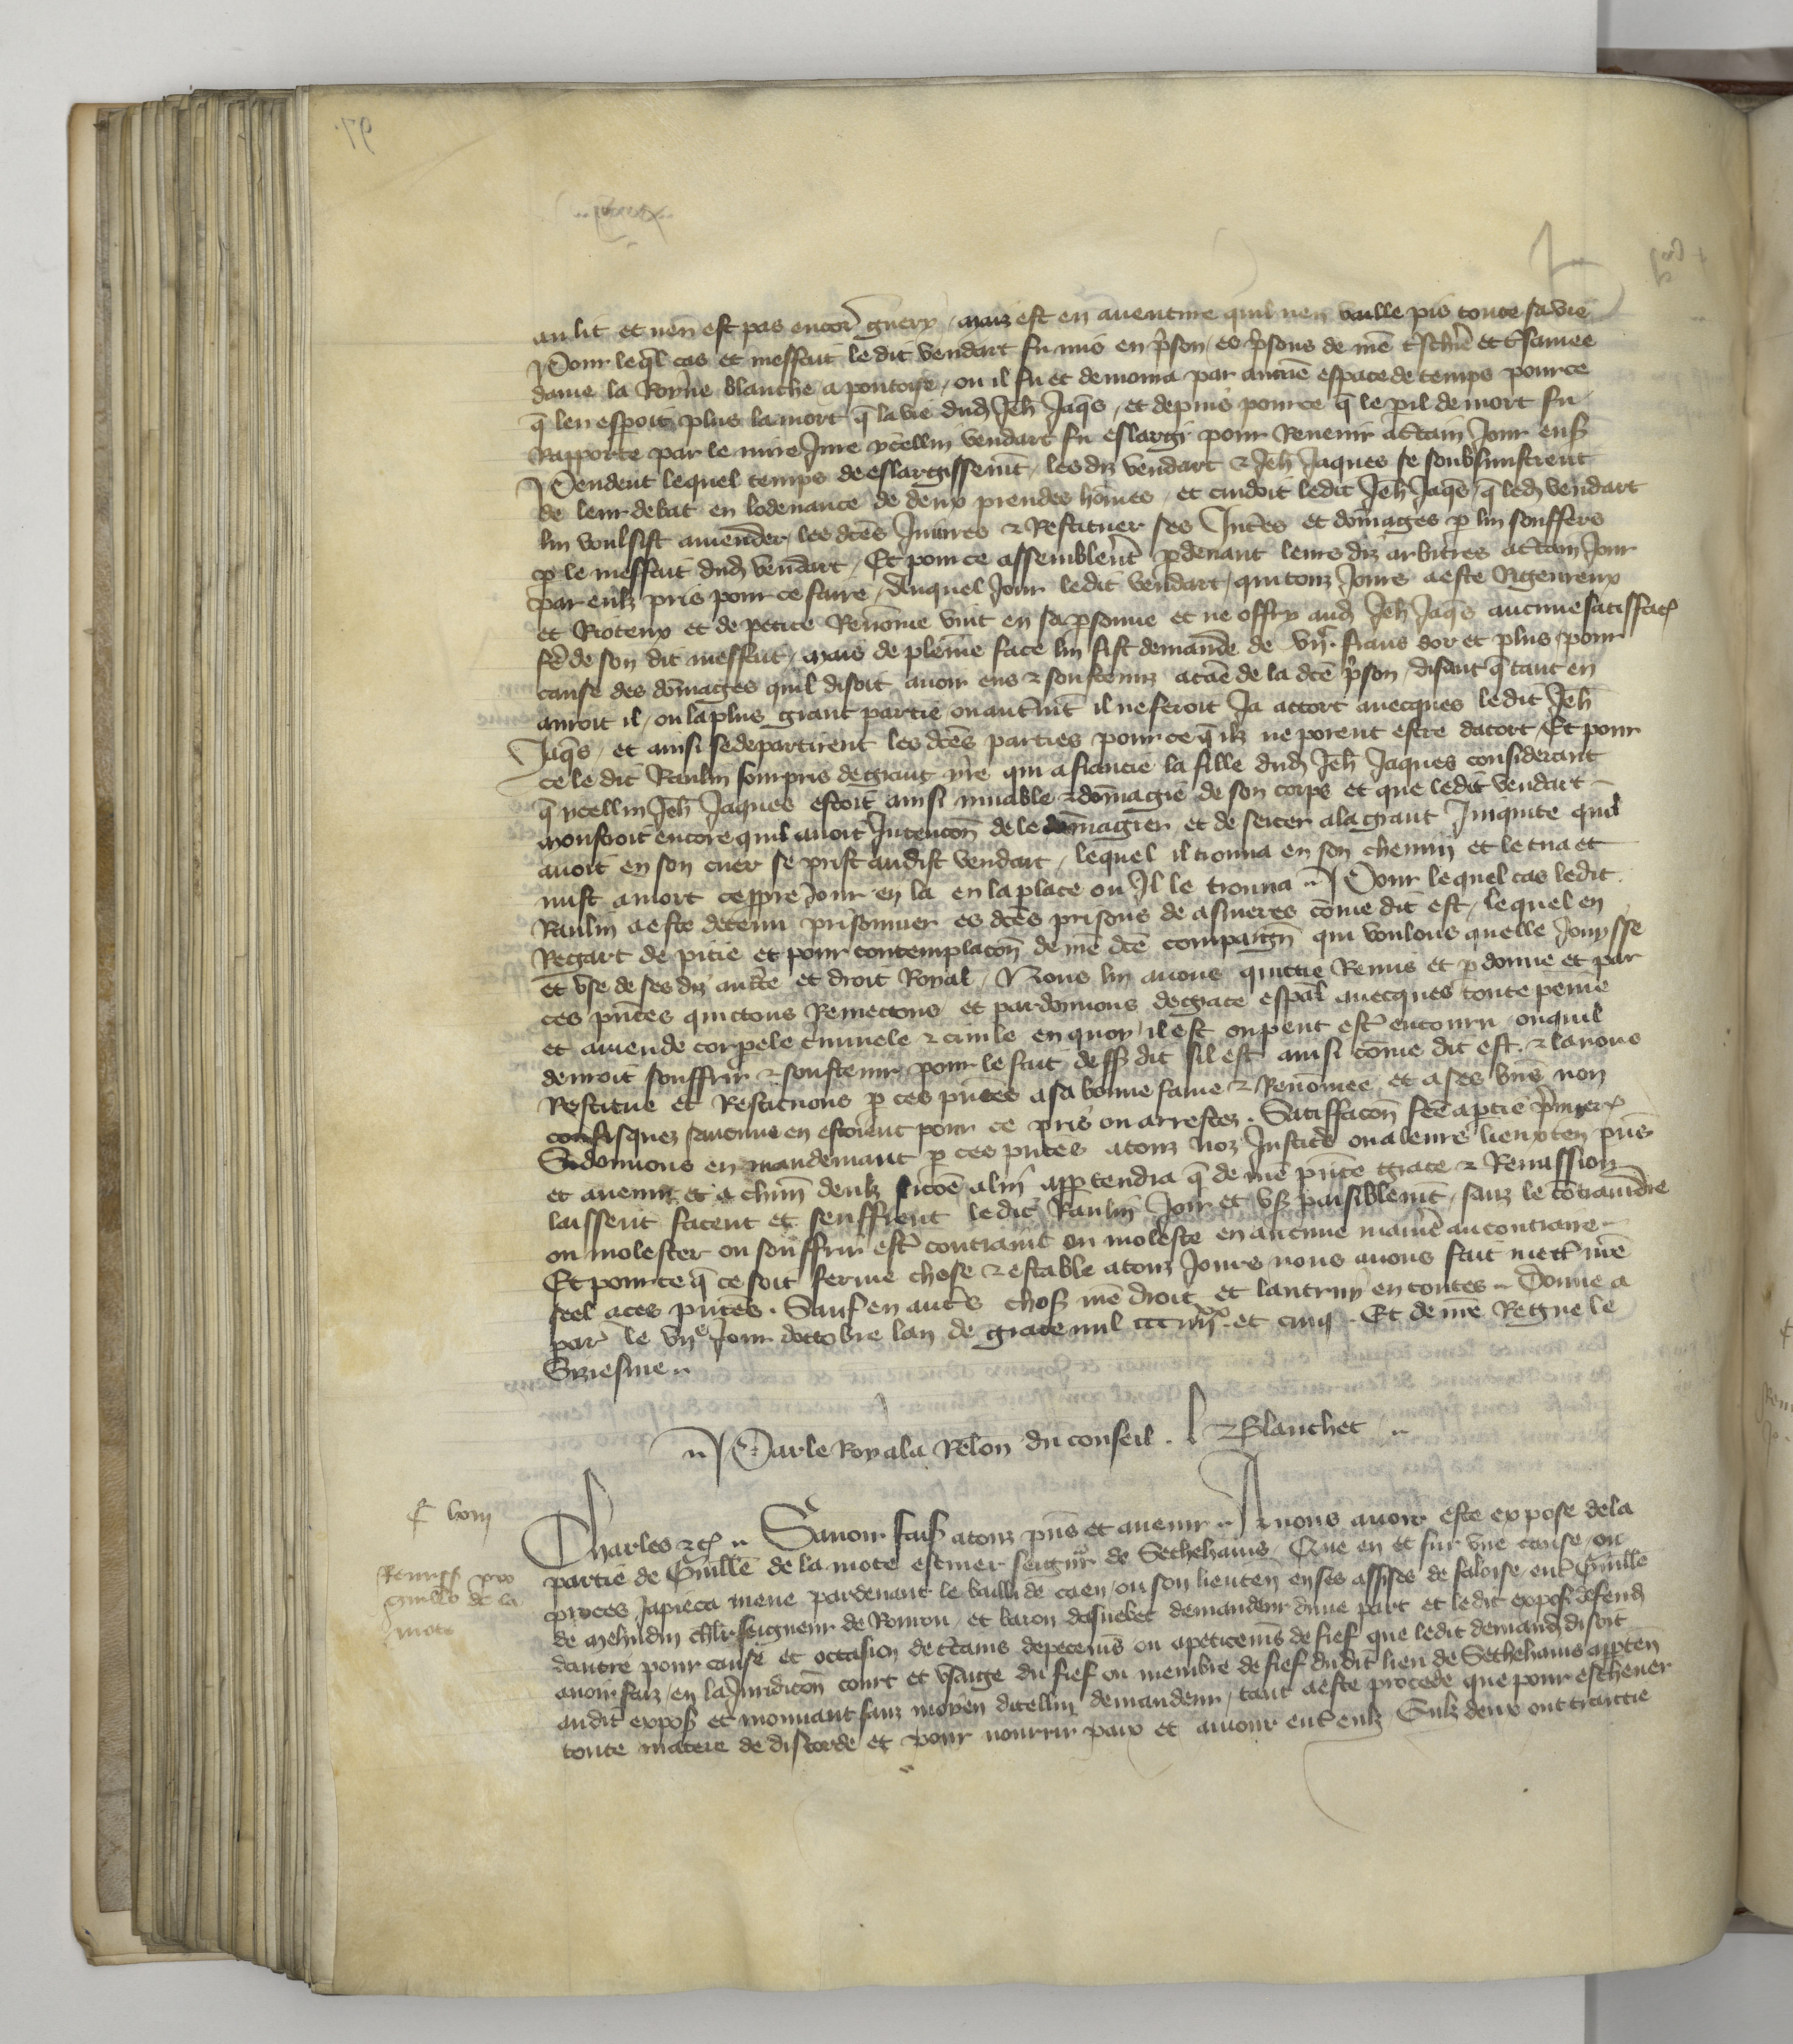 au lit et nen est pas encor guery / mais est en aventure quil nen vaille pis toute sa vie
Pour leql cas et meffait le dit vendart fu mis en pson / es psons de nre tschiere et tsamee
dame la Royne blanche a pontoise / ou il fu et demoura par aucune espace de temps pource
q len espoit plus la mort q la vie dud Jeh Jaqs / et depuis pource q le pil de mort fu
Rapporte par le mire Jure ycellui vendart fu eslargi pour Revenir a ctain Jour ens
Pendent lequel temps de eslargissemt / les diz vendart & Jeh Jaques se soubzmistrent
de leur debat en lodenance de deux preudes homes / et cuidoit ledit Jeh Jaqs / q led vendart
lui voulsist amender / les dces Iniures & Restituer ses Intes et domages p lui souffers
p le meffait dud vendart / Et pour ce assemblerent pdevant leurs diz arbitres a ctain Jour
par eulz pris pour ce faire / Auquel Jour ledit vendart / qui touz Jours a este Rigeureux
et Rioteux et de petite Renomme vint en sa psonne et ne offry aud Jeh Jaqs aucune satisfac
fe de son dit meffait / mais de pleine face lui fist demande de vjxx frans dor et plus / pour
cause des domages quil disoit avoir eus & soustenuz a cae de la dce pson / disant q tant en
auroit il / ou la plus grant partie ou autmt il ne feroit Ja accort avecques ledit Jeh
Jaqs / et ainsi se departirent les dces parties pource q ilz ne porent estre dacort / Et pour
ce le dit Raulin sourpris de grant yre qui a fiancie la fille dud Jeh Jaques considerant
q ycellui Jeh Jaques estoit ainsi muable & domagie de son corps et que ledit vendart
monstroit encore quil avoit Intencon de le domagier et de seicer a la grant Iniquite quil
avoit en son cuer se prist audist vendart / lequel il trouva en son chemin et le tua et
mist a mort ce ppre Jour en la en la place ou Il le trouva .. Pour lequel cas ledit
Raulin a este detenu prisonnier es dces prisons de asnieres come dit est / lequel en
Regart de pitie et pour contemplacon de nre dce compaign qui voulons quelle Jouysse
et use de ses diz aucte et droit Royal / Nous lui avons quittie Remis et pdonne et par
ces pntes quictons Remectons et pardonnons de grace espal avecques toute peine
et amende corpele cminele & civile en quoy il est ou peut est encouru / ou quil
devroit souffrir & soustenir pour le fait dess dit sil est ainsi come dit est & lavons
Restitue et Restituons p ces pntes a sa bonne fame & Renomee et a ses biens non
confisquez saucuns en estoient pour ce pris ou arrestez . Satisfacon fee a ptie pmier
Si donnons en mandemant p ces pntes a touz noz Justics ou a leurs lieuxten pns
et avenir et a chun deulz sicoe a lui appartendra q de nre pnte grace & Remission
laissent facent et seuffrent ledit Raulin Joir et us paisiblemt / sanz le contraindre
ou molester ou souffrir est contraint ou moleste en aucune maniere au contraire
Et pource q ce soit ferme chose & estable a touz Jours nous avons fait mett nre
seel a ces pntes . Sauf en auts chos nre droit et lautruy en toutes .. Donne a
par le vije Jour doctobre lan de grace mil ccc iiijxx et cinq . Et de nre Regne le
Siziesme ..
.. Par le Roy a la Relon du conseil . & Blanchet ..
lviij
Remiss pro
Guillo de la
mote
Charles &c .. Savoir fais a touz pns et avenir .. A nous avoir este expose de la
partie de Guille de la mote escuier seignr de Secheliavis / Que en et sur une cause / ou
proces Ja pieca meue pardevant le bailli de caen / ou son lieuten en ses assises de faloise / ent Guille
de mehudin chlr seigneur de Romou / et baron dasnebec demandeur dune part et ledit expos defend
dautre pour cause et occasion de ctains depecemns ou apeticemns de fief que ledit demand disoit
avoir faiz / en la Juridicon court et usaige du fief ou membre de fief dudit lieu de Secheliavis apptien
audit expos et mouvant sanz moyen dicellui demandeur / tant a este procede que pour eschever
toute matere de discorde et pour nourrir paix et amour ent eulz Eulz deux ont traictie